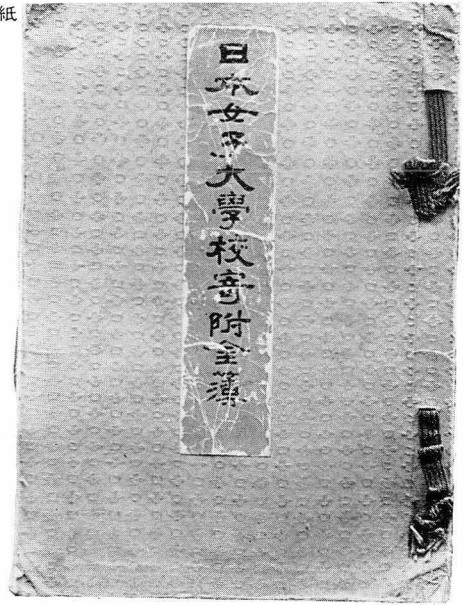 紙
日本女子大學校寄附金簿